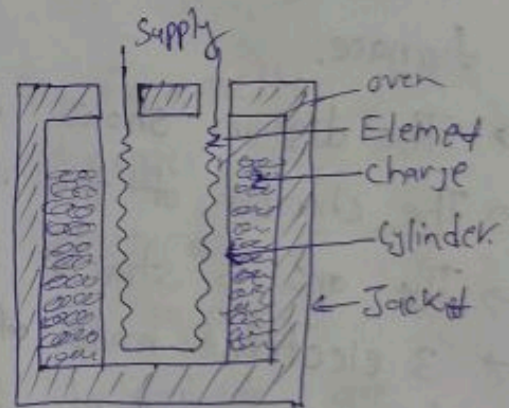 Supply
oven
Elemet
charge
cylinder.
Jacket